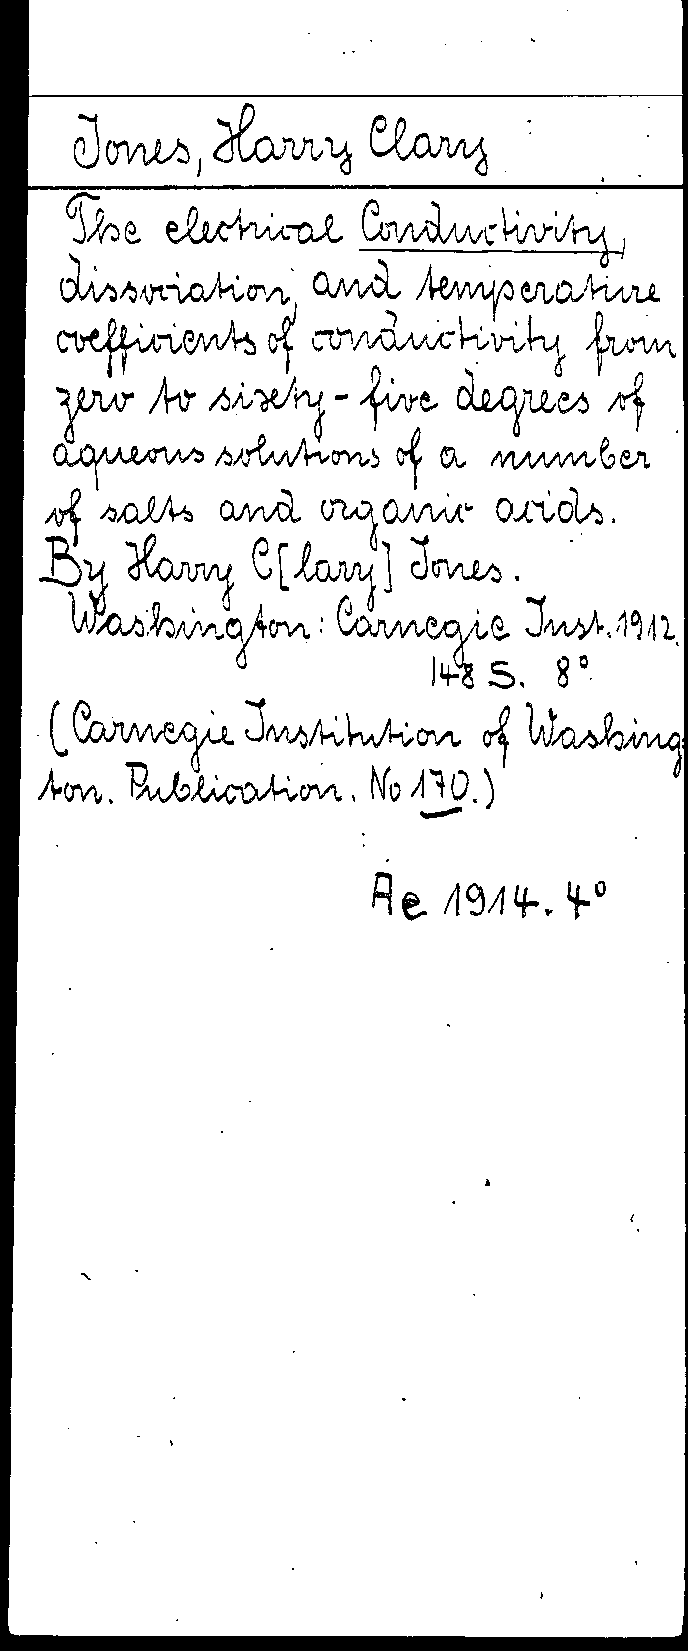 Jones, Harry Clary
The electrical Conductivity,
dissociation, and temperature
coefficients of conductivity from
zero to sixty-five degrees of
aqueous solutions of a number
of salts and organic acids.
By Harry C[lary] Jones.
Washington: Carnegie Inst. 1912.
148 S. 8°
(Carnegie Institution of Washing
ton. Publication. No 170.)
Ae 1914. 4°